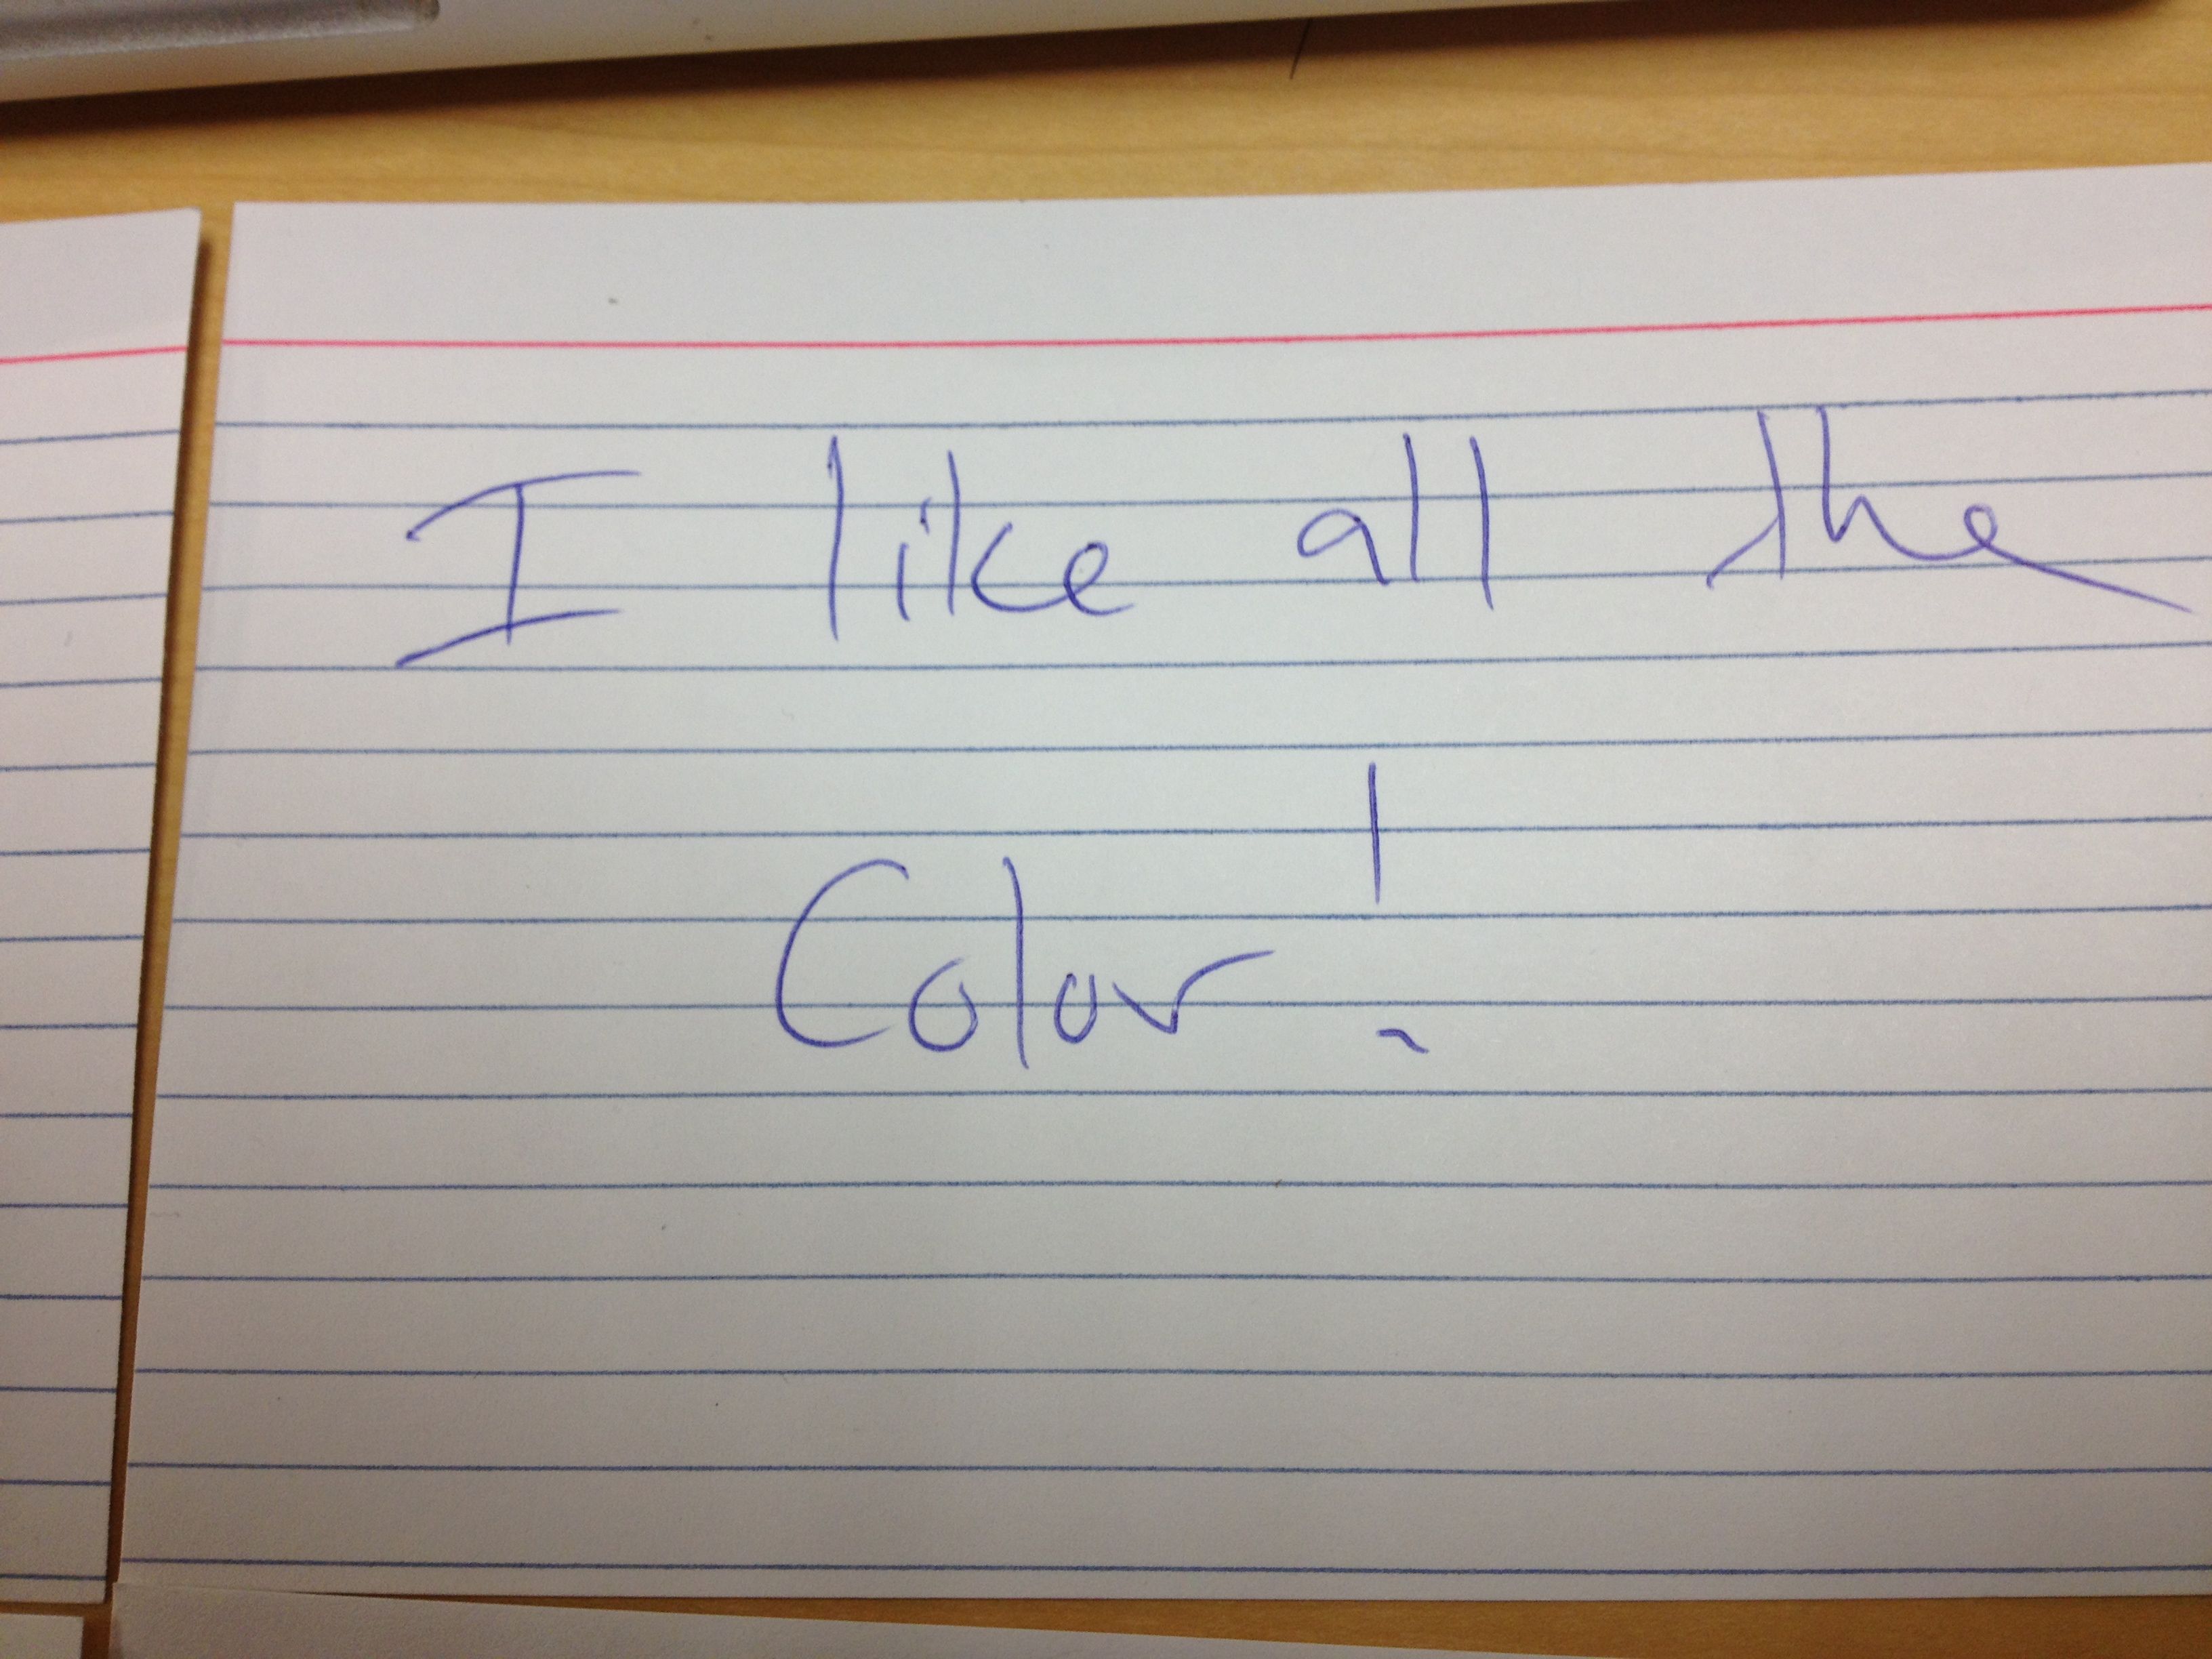 I like all the
Color !